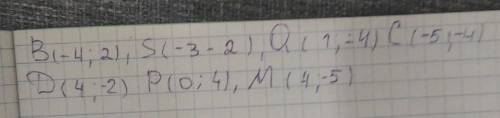 B(-4; 2), S(-3-2), Q(1; -4) C(-5;-4)
D(4;-2) P(0; 4), M(4;-5)